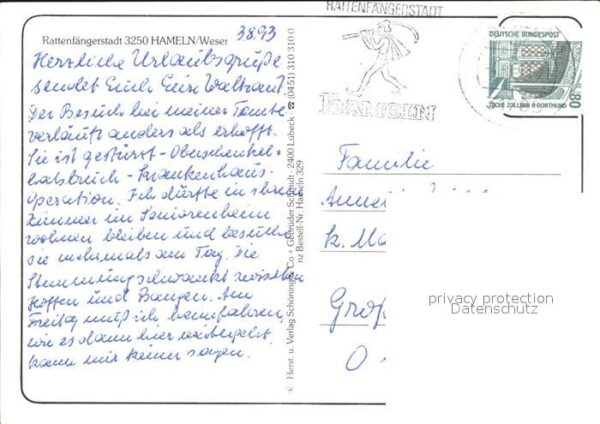 Rattenfängerstadt 3250 HAMELN/Weser
3.8.93
Herzliche Urlaubsgrüße
sendet Euch Eure Waltraud.
Der Besuch bei meiner Tante
verläuft anders als erhofft.
Sie ist gestürzt - Oberschenkel-
halsbruch - Krankenhaus-
operation. Ich dürfte in ihrem
Zimmer im Seniorenheim
wohnen bleiben und besuche
sie mehrmals am Tag. Die
Stimmung schwankt zwischen
Hoffen und Bangen. Am
Freitag muß ich heimfahren,
wie es dann hier weitergeht,
kann mir keiner sagen.
© Herst. u. Verlag Schöning & Co + Gebrüder Schmidt · 2400 Lübeck · ☎ (0451) 310 310 0
nz Bestell-Nr. Hameln 329
RATTENFÄNGERSTADT
HAMELN
DEUTSCHE BUNDESPOST
80
ZOLLERN II DORTMUND
Familie
k. Ma
Groß
O
privacy protection
Datenschutz